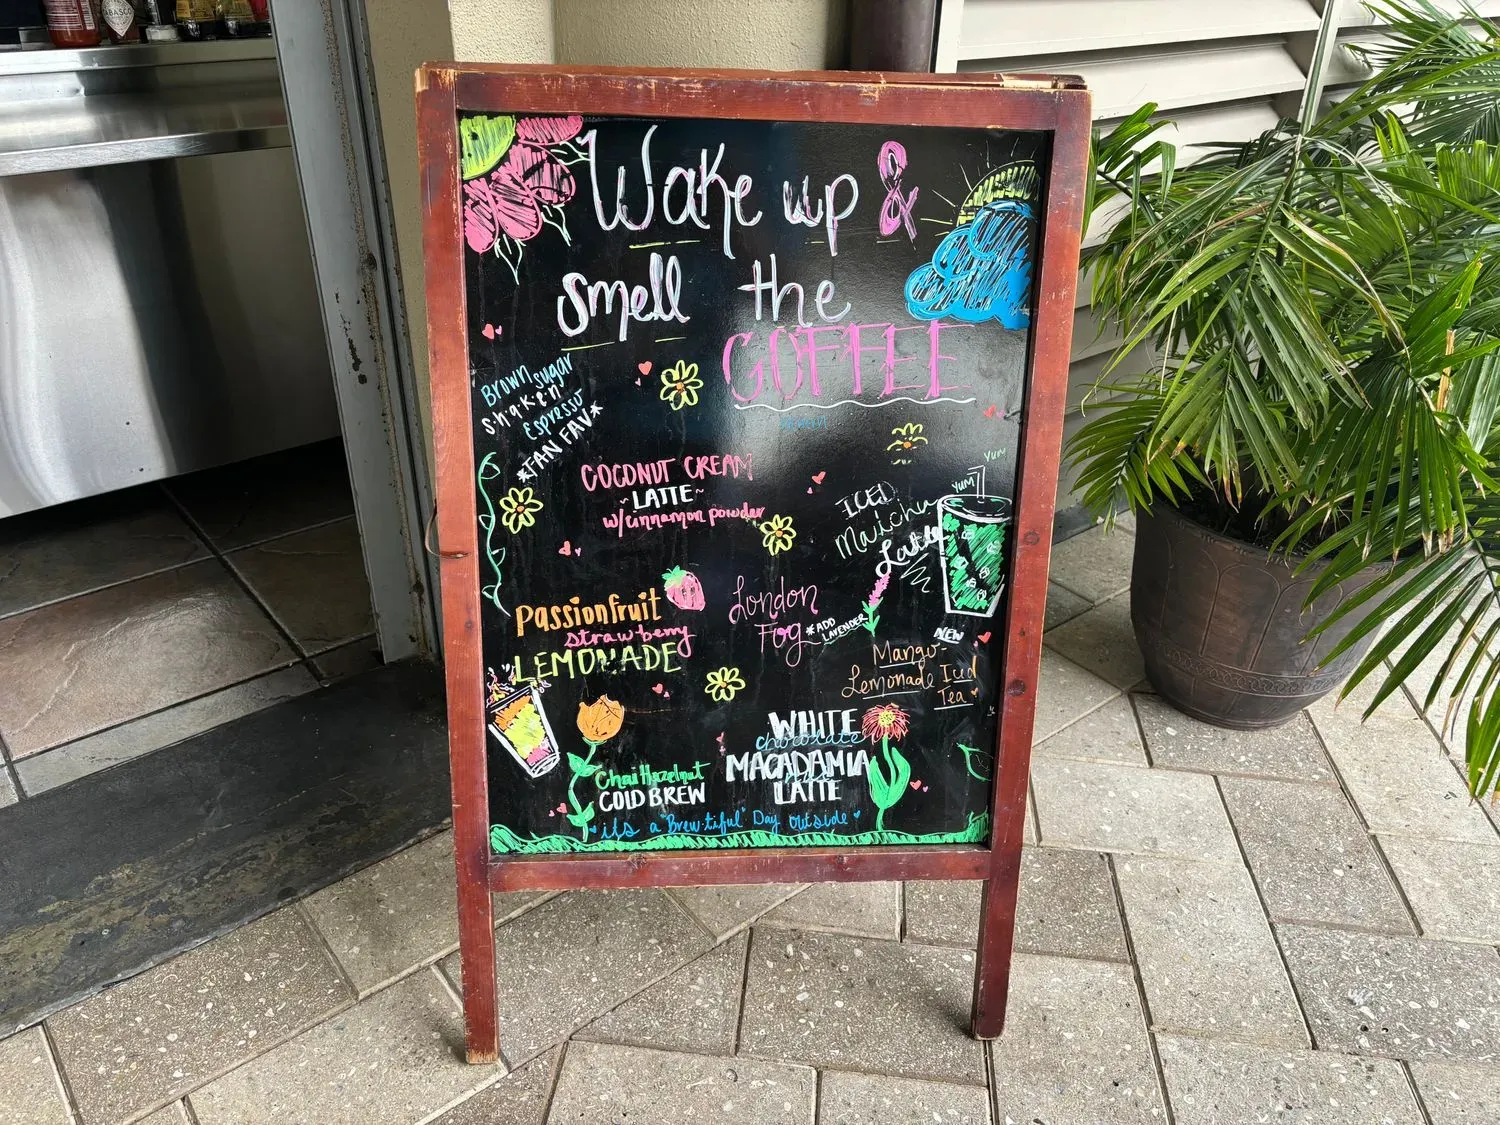 Wake up &
smell the
COFFEE
Brown sugar
s·h·a·k·e·n
Espresso
*FAN FAV*
COCONUT CREAM
~LATTE~
w/cinnamon powder
YUM
YUM
ICED
Matcha
Latte
Passionfruit
strawberry
LEMONADE
London
Fog *ADD
LAVENDER
NEW
Mango-
Lemonade Iced
Tea
WHITE
chocolate
MACADAMIA
LATTE
Chai Hazelnut
COLD BREW
it's a "Brew·tiful" Day outside
TABASCO